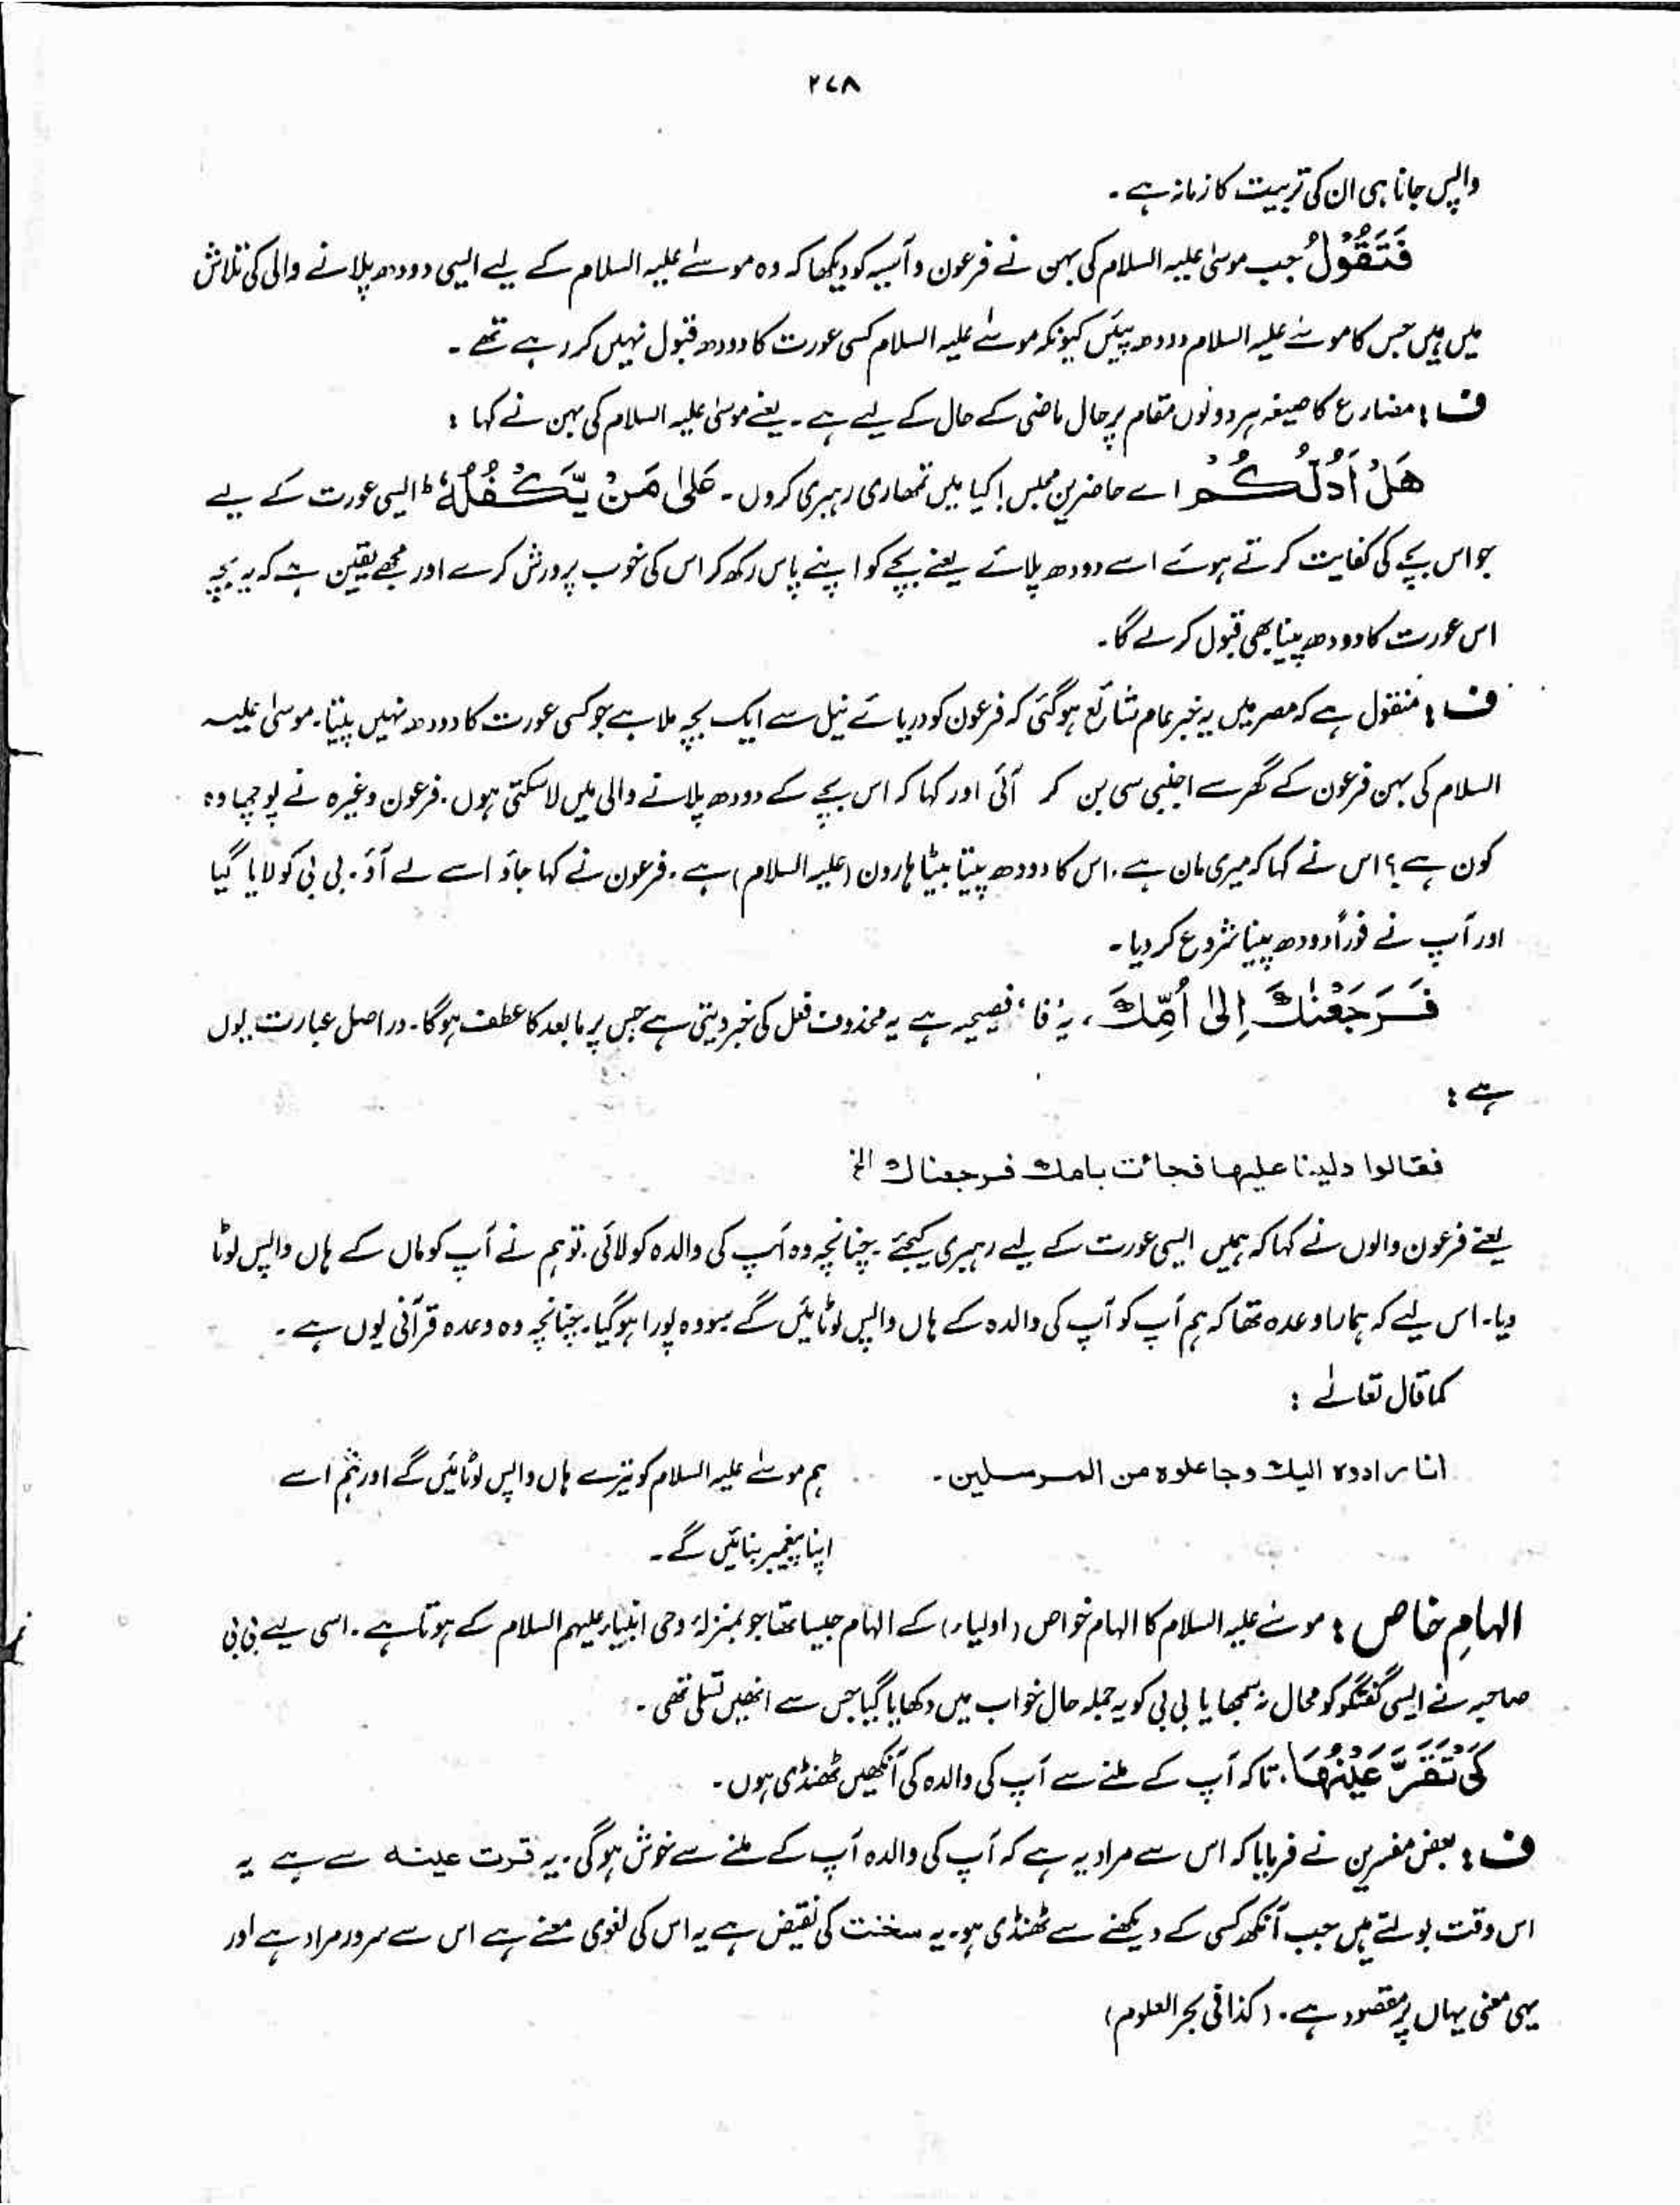 ۲۷۸
واپس جانا ہی ان کی تربیت کا زمانہ ہے ۔
فَتَقُوْلُ جب موسیٰ علیہ السلام کی بہن نے فرعون و آسیہ کو دیکھا کہ وہ موسےٰ علیہ السلام کے لیے ایسی دودھ پلانے والی کی تلاش
میں ہیں جس کا موسےٰ علیہ السلام دودھ پئیں کیونکہ موسےٰ علیہ السلام کسی عورت کا دودھ قبول نہیں کر رہے تھے ۔
ف : مضارع کا صیغہ ہر دونوں مقام پر حال ماضی کے حال کے لیے ہے ۔ یعنے موسیٰ علیہ السلام کی بہن نے کہا :
هَلْ اَدُلُّكُمْ اے حاضرین مجلس ! کیا میں تمھاری رہبری کروں ۔ عَلٰى مَنْ يَّكْفُلُهٗ ؕ ایسی عورت کے لیے
جو اس بچے کی کفایت کرتے ہوئے اسے دودھ پلائے یعنے بچے کو اپنے پاس رکھ کر اس کی خوب پرورش کرے اور مجھے یقین ہے کہ یہ بچہ
اس عورت کا دودھ پینا بھی قبول کرلے گا ۔
ف : منقول ہے کہ مصر میں یہ خبر عام شائع ہوگئی کہ فرعون کو دریائے نیل سے ایک بچہ ملا ہے جو کسی عورت کا دودھ نہیں پیتا ۔ موسیٰ علیہ
السلام کی بہن فرعون کے گھر سے اجنبی سی بن کر آئی اور کہا کہ اس بچے کے دودھ پلانے والی میں لاسکتی ہوں ۔ فرعون وغیرہ نے پوچھا وہ
کون ہے ؟ اس نے کہا کہ میری ماں ہے ، اس کا دودھ پیتا بیٹا ہارون (علیہ السلام) ہے ۔ فرعون نے کہا جاؤ اسے لے آؤ ۔ بی بی کو لایا گیا
اور آپ نے فوراً دودھ پینا شروع کر دیا ۔
فَرَجَعْنٰكَ اِلٰى اُمِّكَ ، یہ ’ فا ‘ فصیحہ ہے یہ محذوف فعل کی خبر دیتی ہے جس پر مابعد کا عطف ہوگا ۔ دراصل عبارت یوں
ہے :
فقالوا دلينا عليها فجائت بامك فرجعناك الخ
یعنے فرعون والوں نے کہا کہ ہمیں ایسی عورت کے لیے رہبری کیجئے ۔ چنانچہ وہ آپ کی والدہ کو لائی ۔ تو ہم نے آپ کو ماں کے ہاں واپس لوٹا
دیا ۔ اس لیے کہ ہمارا وعدہ تھا کہ ہم آپ کو آپ کی والدہ کے ہاں واپس لوٹائیں گے سو وہ پورا ہوگیا ۔ چنانچہ وہ وعدہ قرآنی یوں ہے ۔
کما قال تعالےٰ :
انا رادوه اليك وجاعلوه من المرسلين ۔ ہم موسےٰ علیہ السلام کو تیرے ہاں واپس لوٹائیں گے اور ہم اسے
اپنا پیغمبر بنائیں گے ۔
الہامِ خاص : موسےٰ علیہ السلام کا الہام خواص (اولیاء) کے الہام جیسا تھا جو بمنزلۂ وحی انبیاء علیہم السلام کے ہوتا ہے ۔ اسی لیے بی بی
صاحبہ نے ایسی گفتگو کو محال نہ سمجھا یا بی بی کو یہ جملہ حال خواب میں دکھایا گیا جس سے انھیں تسلی تھی ۔
كَىْ تَقَرَّ عَيْنُهَا ، تاکہ آپ کے ملنے سے آپ کی والدہ کی آنکھیں ٹھنڈی ہوں ۔
ف : بعض مفسرین نے فرمایا کہ اس سے مراد یہ ہے کہ آپ کی والدہ آپ کے ملنے سے خوش ہوگی ۔ یہ قرت عينه سے ہے یہ
اس وقت بولتے ہیں جب آنکھ کسی کے دیکھنے سے ٹھنڈی ہو ۔ یہ سخنت کی نقیض ہے یہ اس کی لغوی معنے ہے اس سے سرور مراد ہے اور
یہی معنی یہاں پر مقصود ہے ۔ (کذا فی بحر العلوم)